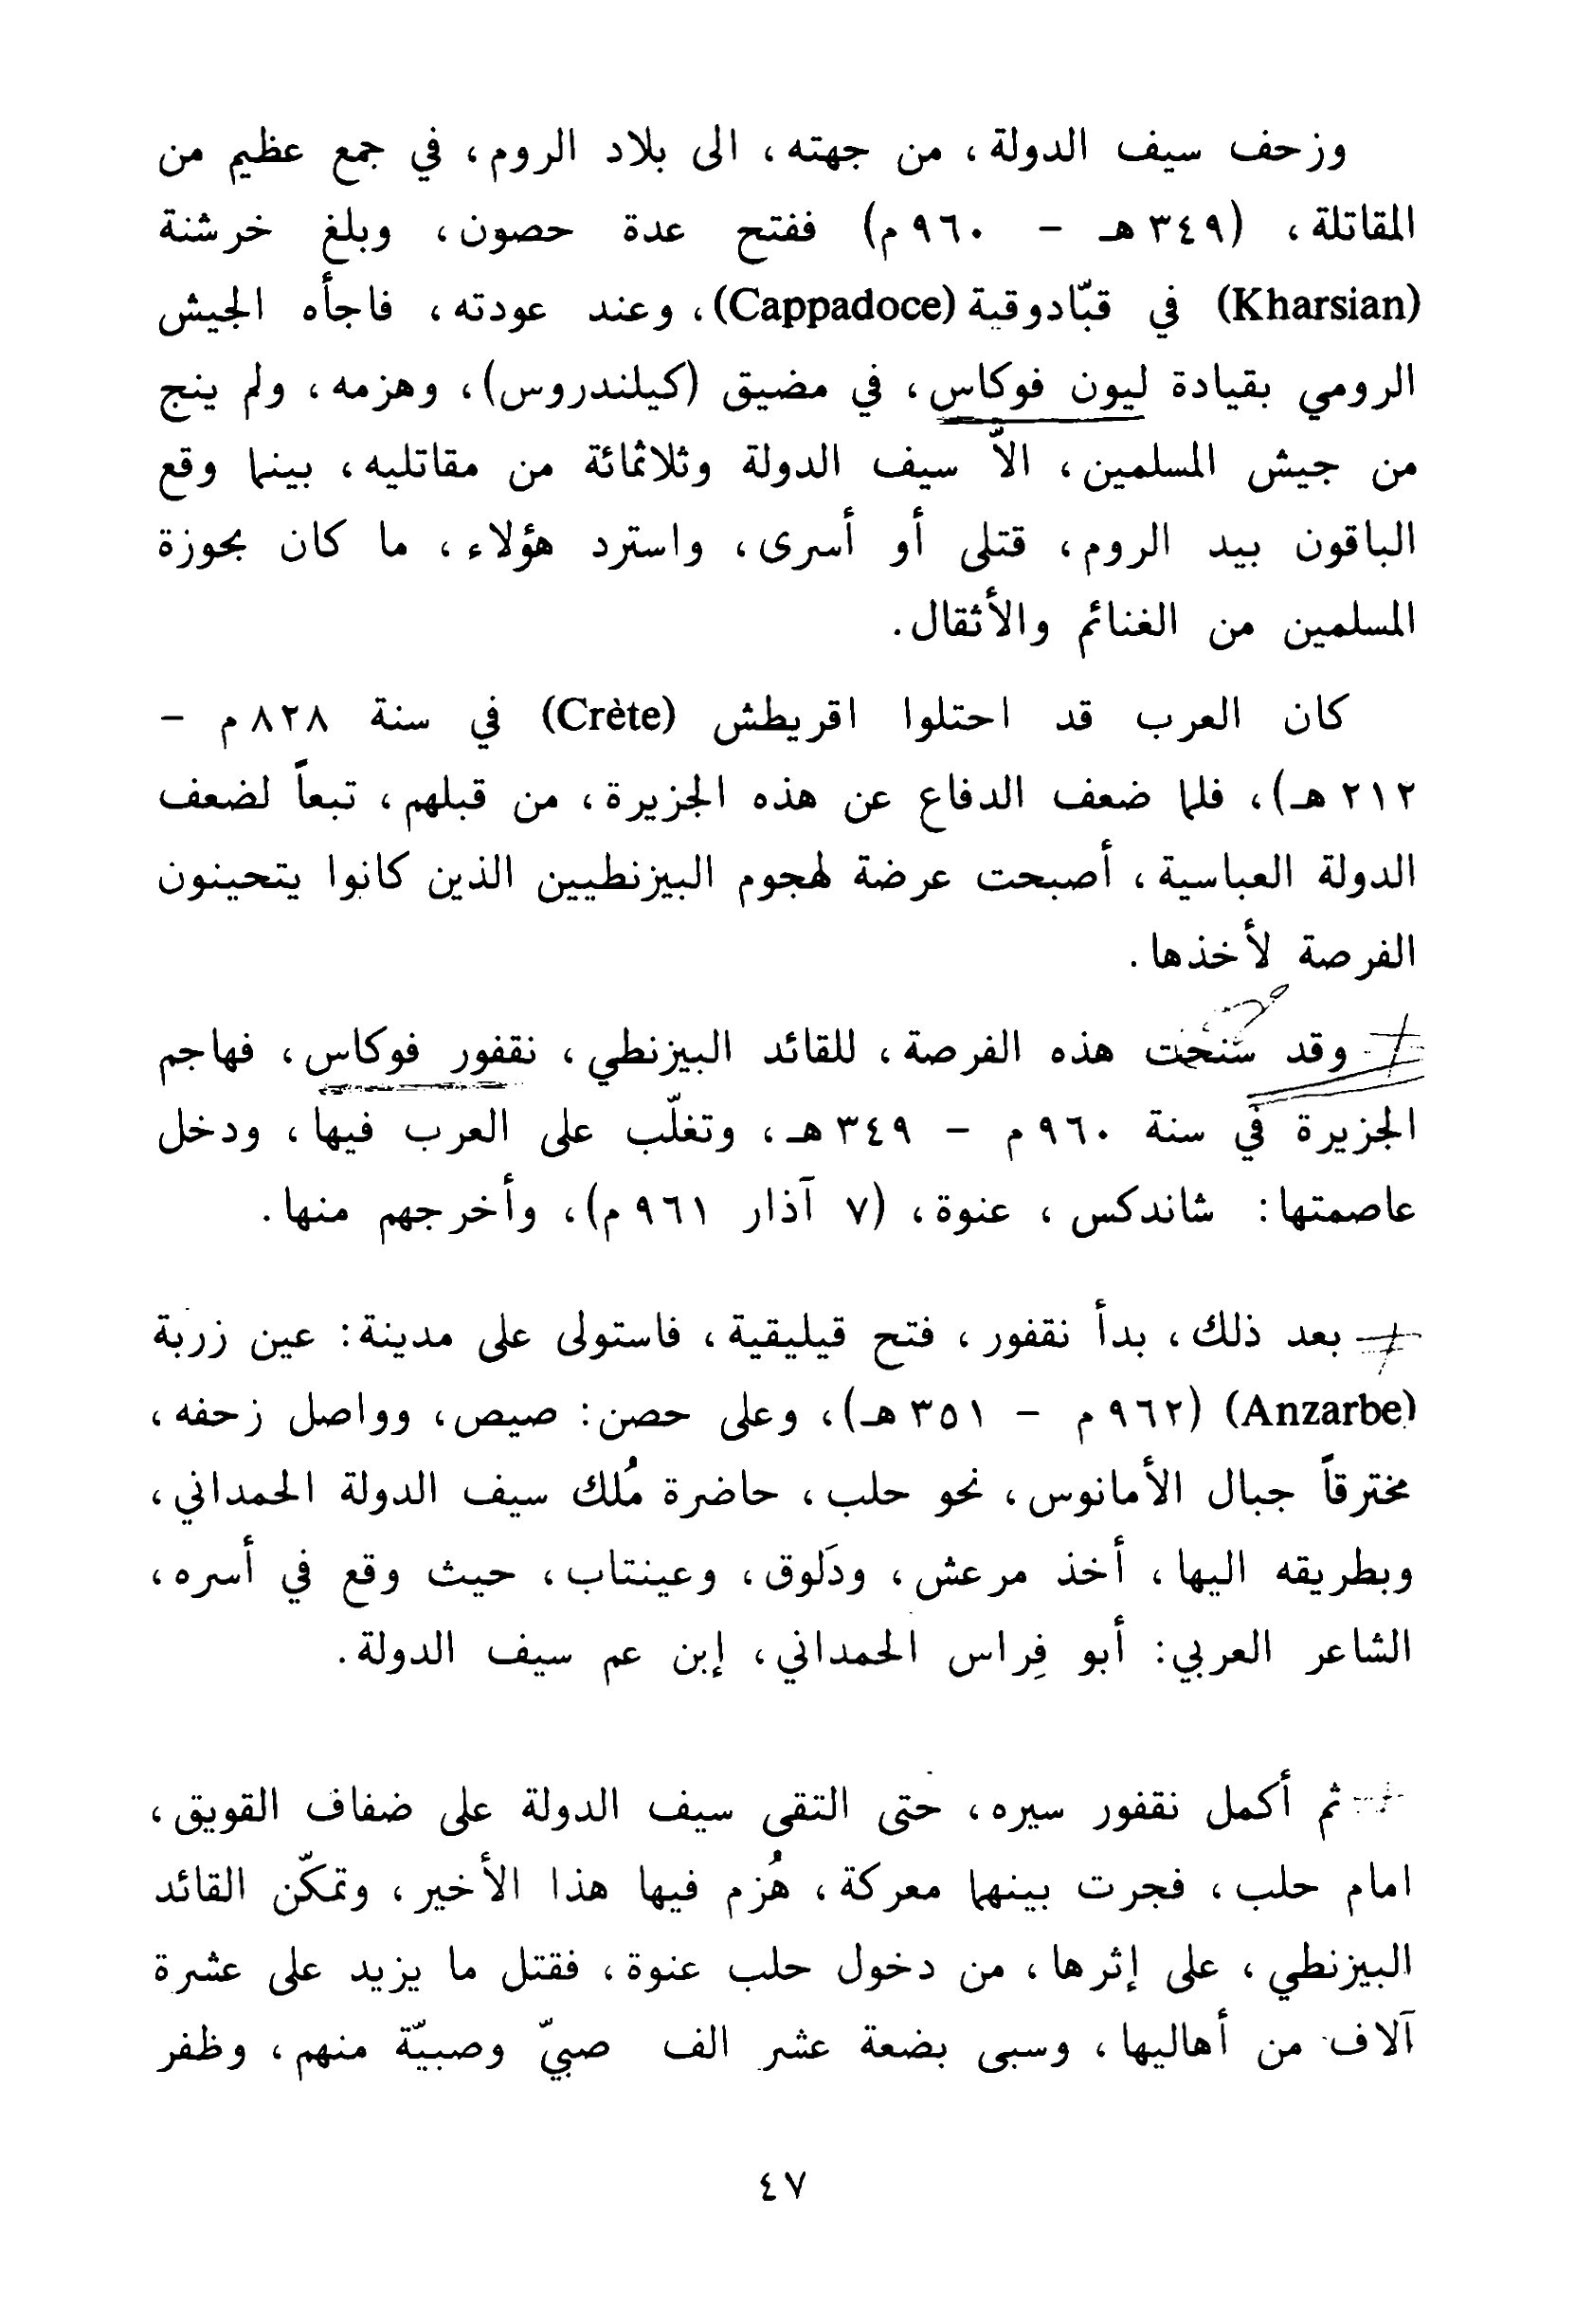 وزحف سيف الدولة، من جهته، الى بلاد الروم، في جمع عظيم من
المقاتلة، (٣٤٩ هـ - ٩٦٠ م) ففتح عدة حصون، وبلغ خرشنة
(Kharsian) في قبّادوقية (Cappadoce)، وعند عودته، فاجأه الجيش
الرومي بقيادة ليون فوكاس، في مضيق (كيلندروس)، وهزمه، ولم ينج
من جيش المسلمين، الاّ سيف الدولة وثلاثمائة من مقاتليه، بينما وقع
الباقون بيد الروم، قتلى أو أسرى، واسترد هؤلاء، ما كان بحوزة
المسلمين من الغنائم والأثقال.
كان العرب قد احتلوا اقريطش (Crète) في سنة ٨٢٨ م -
٢١٢ هـ)، فلما ضعف الدفاع عن هذه الجزيرة، من قبلهم، تبعاً لضعف
الدولة العباسية، أصبحت عرضة لهجوم البيزنطيين الذين كانوا يتحينون
الفرصة لأخذها.
وقد سنحت هذه الفرصة، للقائد البيزنطي، نقفور فوكاس، فهاجم
الجزيرة في سنة ٩٦٠ م - ٣٤٩ هـ، وتغلّب على العرب فيها، ودخل
عاصمتها: شاندكس، عنوة، (٧ آذار ٩٦١ م)، وأخرجهم منها.
بعد ذلك، بدأ نقفور، فتح قيليقية، فاستولى على مدينة: عين زربة
(Anzarbe) (٩٦٢ م - ٣٥١ هـ)، وعلى حصن: صيص، وواصل زحفه،
مخترقاً جبال الأمانوس، نحو حلب، حاضرة مُلك سيف الدولة الحمداني،
وبطريقه اليها، أخذ مرعش، ودَلوق، وعينتاب، حيث وقع في أسره،
الشاعر العربي: أبو فِراس الحمداني، إبن عم سيف الدولة.
ثم أكمل نقفور سيره، حتى التقى سيف الدولة على ضفاف القويق،
امام حلب، فجرت بينهما معركة، هُزم فيها هذا الأخير، وتمكّن القائد
البيزنطي، على إثرها، من دخول حلب عنوة، فقتل ما يزيد على عشرة
آلاف من أهاليها، وسبى بضعة عشر الف صبيّ وصبيّة منهم، وظفر
٤٧